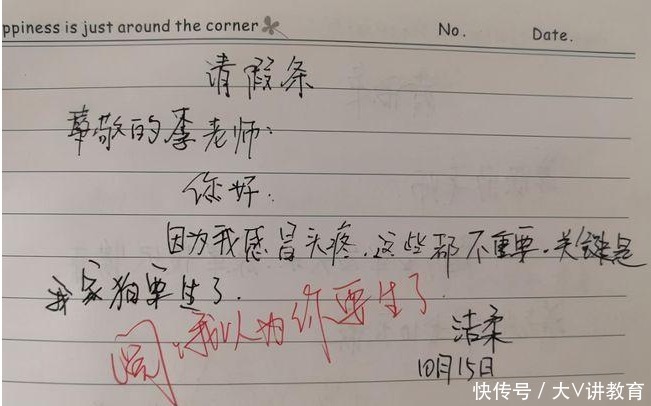 ppiness is just around the corner
No.
Date.
请假条
尊敬的李老师:
你好:
因为我感冒头疼.这些都不重要.关键是
我家狗要生了.
阅,我以为你要生了
洁柔
10月15日
快传号/大V讲教育